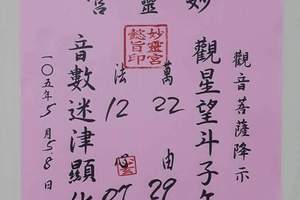 妙靈宮
妙靈宮
懿旨印
觀音菩薩降示
觀星望斗子
萬 22 由 29
法 12 心 07
音數迷津顯
一〇五年5月5.8日